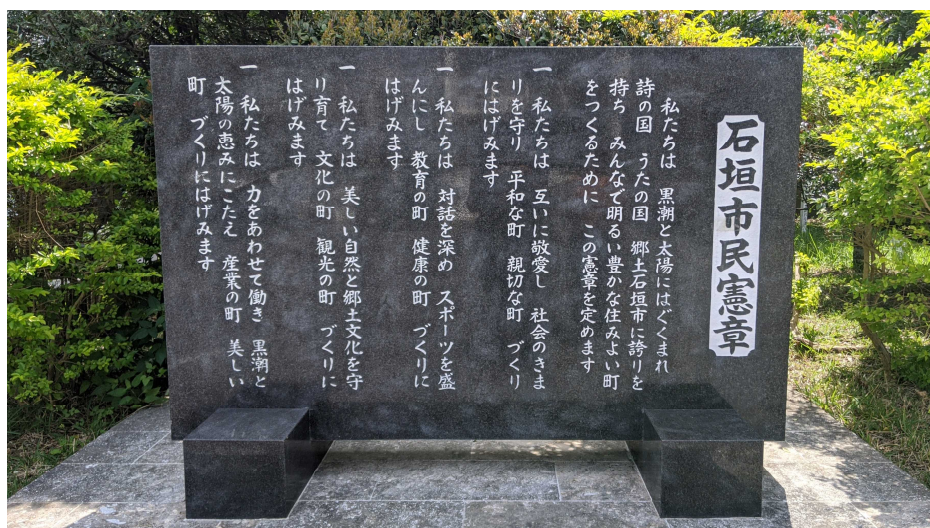 石垣市民憲章
私たちは　黒潮と太陽にはぐくまれ
詩の国　うたの国　郷土石垣市に誇りを
持ち　みんなで明るい豊かな住みよい町
をつくるために　この憲章を定めます
一　私たちは　互いに敬愛し　社会のきま
りを守り　平和な町　親切な町　づくり
にはげみます
一　私たちは　対話を深め　スポーツを盛
んにし　教育の町　健康の町　づくりに
はげみます
一　私たちは　美しい自然と郷土文化を守
り育て　文化の町　観光の町　づくりに
はげみます
一　私たちは　力をあわせて働き　黒潮と
太陽の恵みにこたえ　産業の町　美しい
町　づくりにはげみます